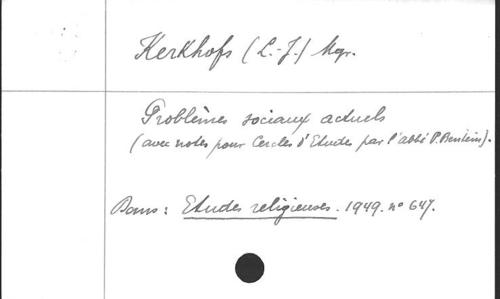 Kerkhofs (L.-J.) Mgr.
Problèmes sociaux actuels
(avec notes pour Cercles d'Etudes par l'abbé P.
Dans: Etudes religieuses. 1949. n° 647.